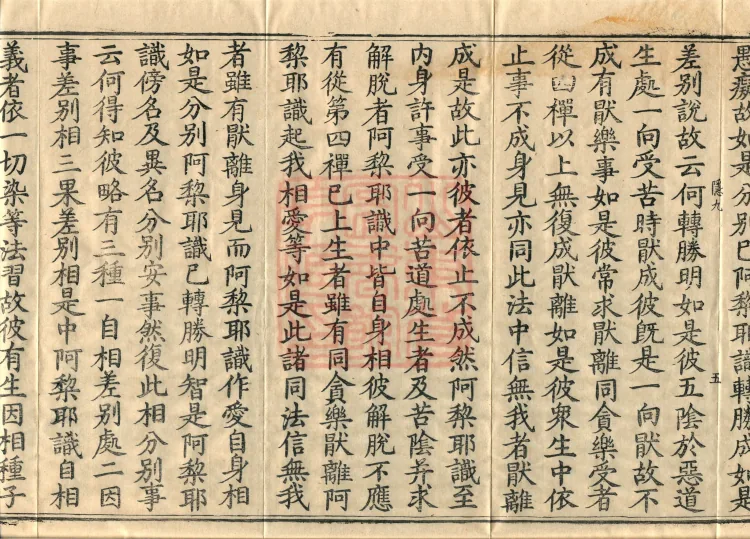 愚癡故如是分別已阿黎耶識轉勝成如是
隱九 五
差別說故云何轉勝明如是彼五陰於惡道
生處一向受苦時猒成彼旣是一向猒故不
成有猒樂事如是彼常求猒離同貪樂受者
從四禪以上無復成猒離如是彼衆生中依
止事不成身見亦同此法中信無我者猒離
成是故此亦彼者依止不成然阿黎耶識至
内身許事受一向苦道處生者及苦陰并求
解脫者阿黎耶識中皆自身相彼解脫不應
有從第四禪已上生者雖有同貪樂猒離阿
黎耶識起我相愛等如是此諸同法信無我
者雖有猒離身見而阿黎耶識作愛自身相
如是分別阿黎耶識已轉勝明智是阿黎耶
識傍名及異名分別安事然復此相分別事
云何得知彼略有三種一自相差別處二因
事差別相三果差別相是中阿黎耶識自相
義者依一切染等法習故彼有生因相種子